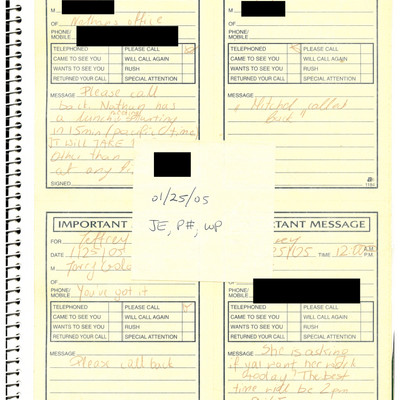 M
OF Nathan's office
PHONE/
MOBILE
TELEPHONED PLEASE CALL
CAME TO SEE YOU WILL CALL AGAIN
WANTS TO SEE YOU RUSH
RETURNED YOUR CALL SPECIAL ATTENTION
MESSAGE Please call
back. Nathan has
a lunch meeting starting
in 15 min (pacific time)
IT WILL TAKE
other than
at any
SIGNED
M
OF
PHONE/
MOBILE
TELEPHONED PLEASE CALL
CAME TO SEE YOU WILL CALL AGAIN
WANTS TO SEE YOU RUSH
RETURNED YOUR CALL SPECIAL ATTENTION
MESSAGE
back"
1184
01/25/05
JE, P#, WP
IMPORTANT
FOR Jeffrey
DATE 1/25/05
M
OF
PHONE/
MOBILE You've got it
TELEPHONED PLEASE CALL
CAME TO SEE YOU WILL CALL AGAIN
WANTS TO SEE YOU RUSH
RETURNED YOUR CALL SPECIAL ATTENTION
MESSAGE
Please call back
TANT MESSAGE
25/05 TIME 12:00 A.M.
P.M.
M
OF
PHONE/
MOBILE
TELEPHONED PLEASE CALL
CAME TO SEE YOU WILL CALL AGAIN
WANTS TO SEE YOU RUSH
RETURNED YOUR CALL SPECIAL ATTENTION
MESSAGE She is asking
if you want her work
today? The best
time will be 2 pm